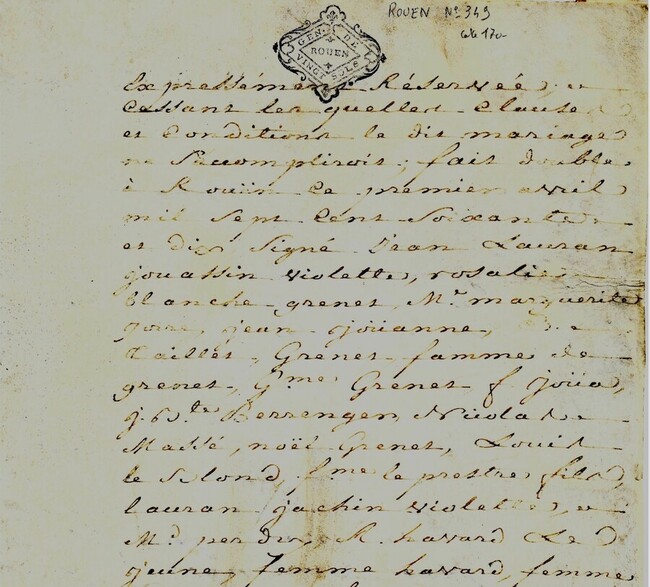 ROUEN N° 349
GEN. DE
ROUEN
VINGT SOLS
Expressément Réservée, et
Cessant les quelles Clauses
et Conditions le dit mariage
ne S'acompliroit, fait double
à Roüen Ce premier avril
mil Sept Cent Soixante
et dix Signé Jean Lauran
jouassin violette, rosalie
blanche grenet, Mr marguerite
jean joüanne,
Taillet, Grenet famme de
grenet, Grenet f joüa,
Berrenger, Nicolas
Massé, noël Grenet, Louis
le Blond, le prestre fils,
Lauran jachin violette, et
Md perdrix, R. havard Le
jeune, femme havard, femme